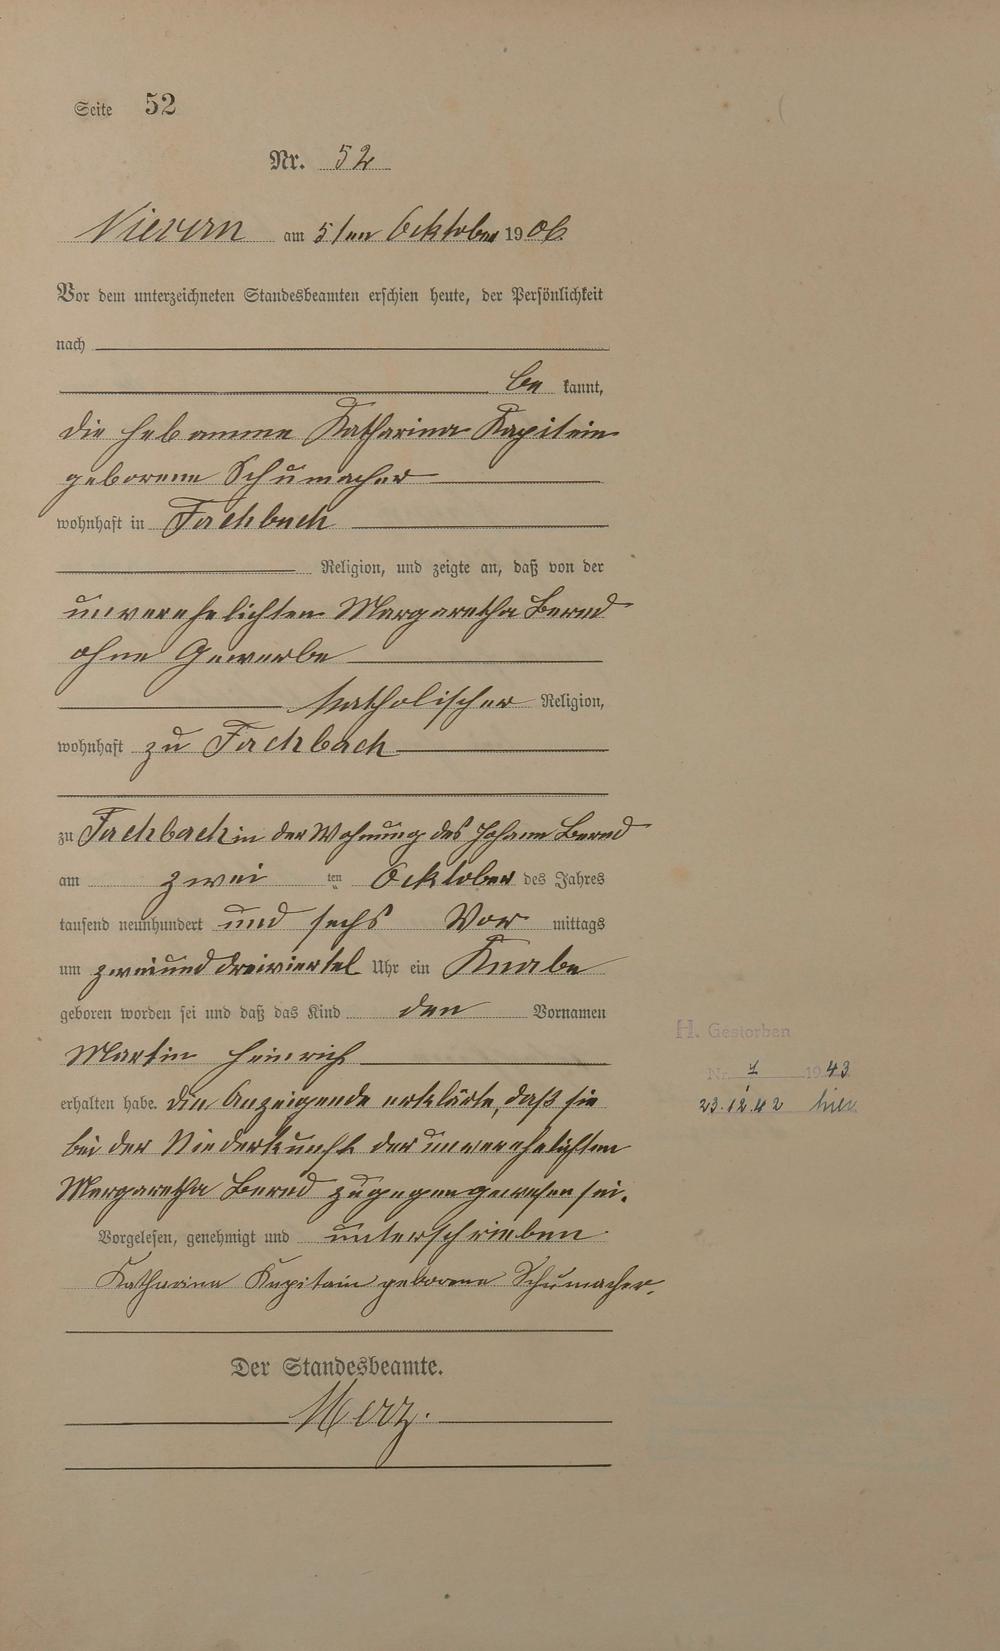 Seite 52
Nr. 52
Nievern am 5ten Ocktober 1906
Vor dem unterzeichneten Standesbeamten erschien heute, der Persönlichkeit
nach
be kannt,
die Hebamme Katharina Kapitein
geborene Schumacher
wohnhaft in Fachbach
Religion, und zeigte an, daß von der
unverehelichten Margaretha Bernd
ohne Gewerbe
katholischer Religion,
wohnhaft zu Fachbach
zu Fachbach in der Wohnung des Johann Bernd
am zwei ten Ocktober des Jahres
tausend neunhundert und sechs Vor mittags
um zweiunddreiviertel Uhr ein Knabe
geboren worden sei und daß das Kind den Vornamen
Martin Heinrich
erhalten habe. Die Anzeigende erklärte, daß sie
bei der Niederkunft der unverehelichten
Margaretha Bernd zugegen gewesen sei.
Vorgelesen, genehmigt und unterschrieben
Katharina Kapitain geborene Schumacher.
Der Standesbeamte.
Merz.
H. Gestorben
Nr. 1 1943
23.12.42 hier